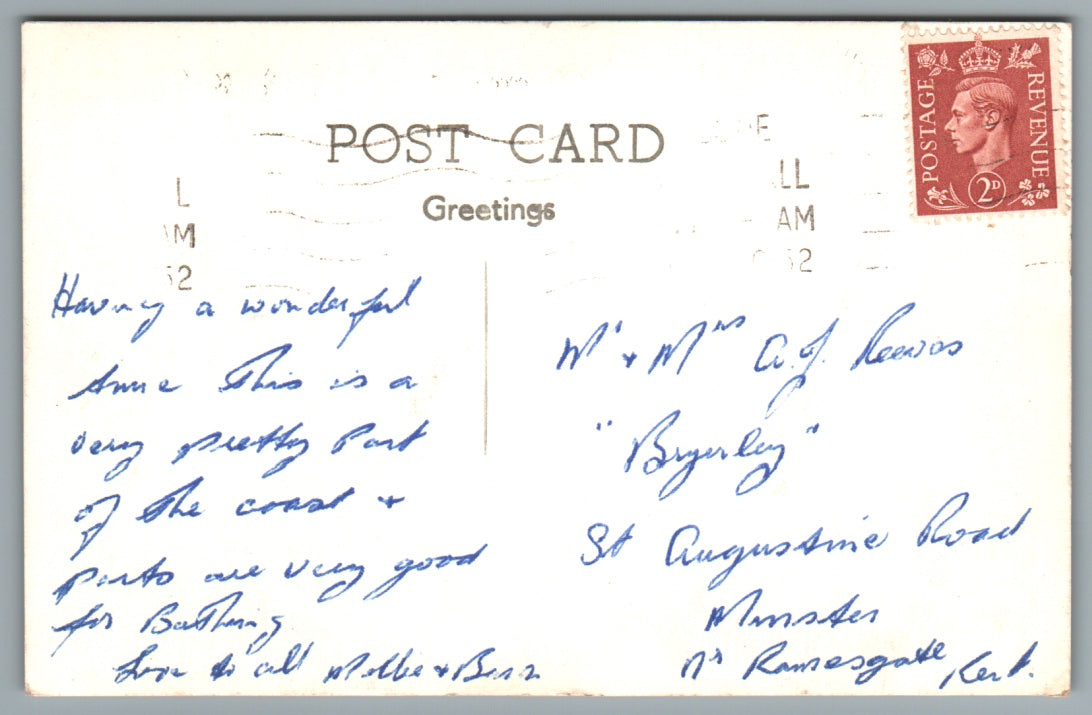 POST CARD
Greetings
POSTAGE REVENUE
2D
LL
AM
52
L
AM
52
Having a wonderful
time This is a
very pretty Part
of the coast +
parts are very good
for Bathing
Love to all Mollie +
Mr + Mrs A.J. Reeves
"Bryerley"
St Augustine Road
Minster
Nr Ramsgate Kent.